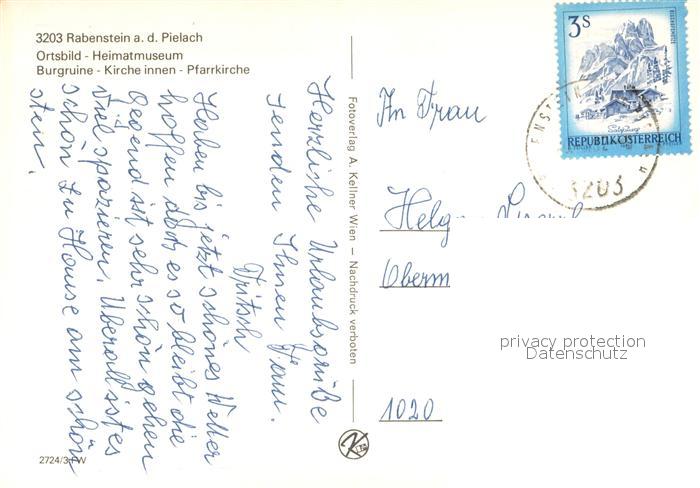 3203 Rabenstein a. d. Pielach
Ortsbild - Heimatmuseum
Burgruine - Kirche innen - Pfarrkirche
Herzliche Urlaubsgrüße
senden Ihnen Fam.
Fritsch
Haben bis jetzt schönes Wetter
hoffen daß es so bleibt die
Gegend ist sehr schön gehen
viel spazieren. Überall ist es
schön zu Hause am schön
stein.
2724/3 W
Fotoverlag A. Kellner Wien – Nachdruck verboten
An Frau
Oberm
1020
3 S
REPUBLIK ÖSTERREICH
3203
privacy protection
Datenschutz